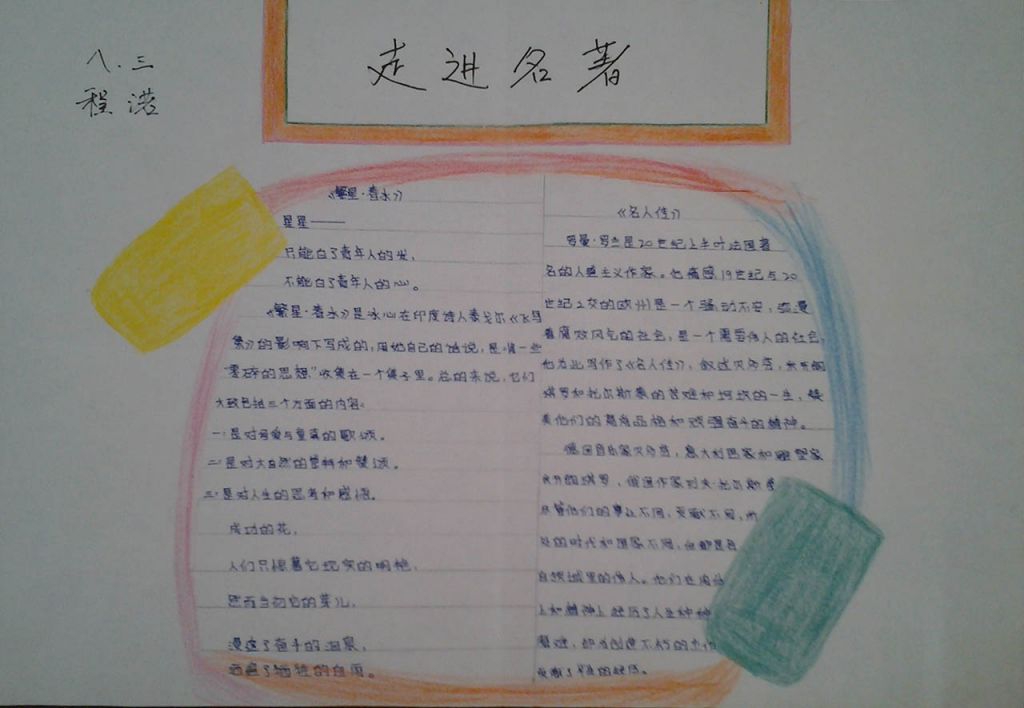 走进名著
八.三
程诺
《繁星·春水》
星星——
只能白了青年人的发,
不能白了青年人的心。
《繁星·春水》是冰心在印度诗人泰戈尔《飞鸟
集》的影响下写成的,用她自己的话说,是将一些
"零碎的思想"收集在一个集子里。总的来说,它们
大致包括三个方面的内容:
一.是对母爱与童真的歌颂。
二.是对大自然的和赞颂。
三.是对人生的思考和感悟。
成功的花,
人们只惊慕她现实的明艳,
然而当初它的芽儿,
浸透了奋斗的泪泉,
洒遍了牺牲的血雨。
《名人传》
罗曼·罗兰是20世纪上半叶法国著
名的人道主义作家。他痛感19世纪与20
世纪之交的欧州是一个动不安,弥漫
着腐败风气的社会,是一个需要伟人的社会,
他为此写作了《名人传》,叙述贝多芬,米开朗
琪罗和托尔斯泰的苦难和坎坷的一生,赞
美他们的高尚品格和顽强奋斗的精神。
德国音乐家贝多芬,意大利画家和雕塑家
米开朗琪罗,俄国作家列夫·托尔斯泰
尽管他们的事业不同,贡献不同,所
处的时代和国家不同,但都是各
自领域里的伟人。他们在肉体
上和精神上经历了人生种种
磨难,却为创造不朽的
贡献了毕生的精力。